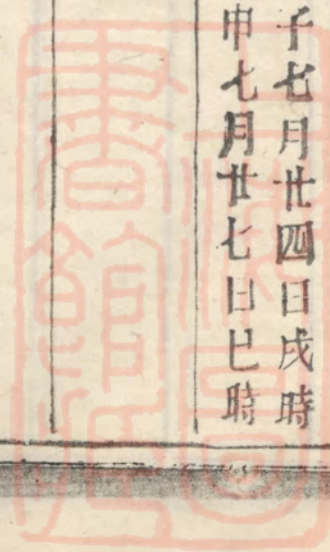 子七月廿四日戌時
申七月廿七日巳時